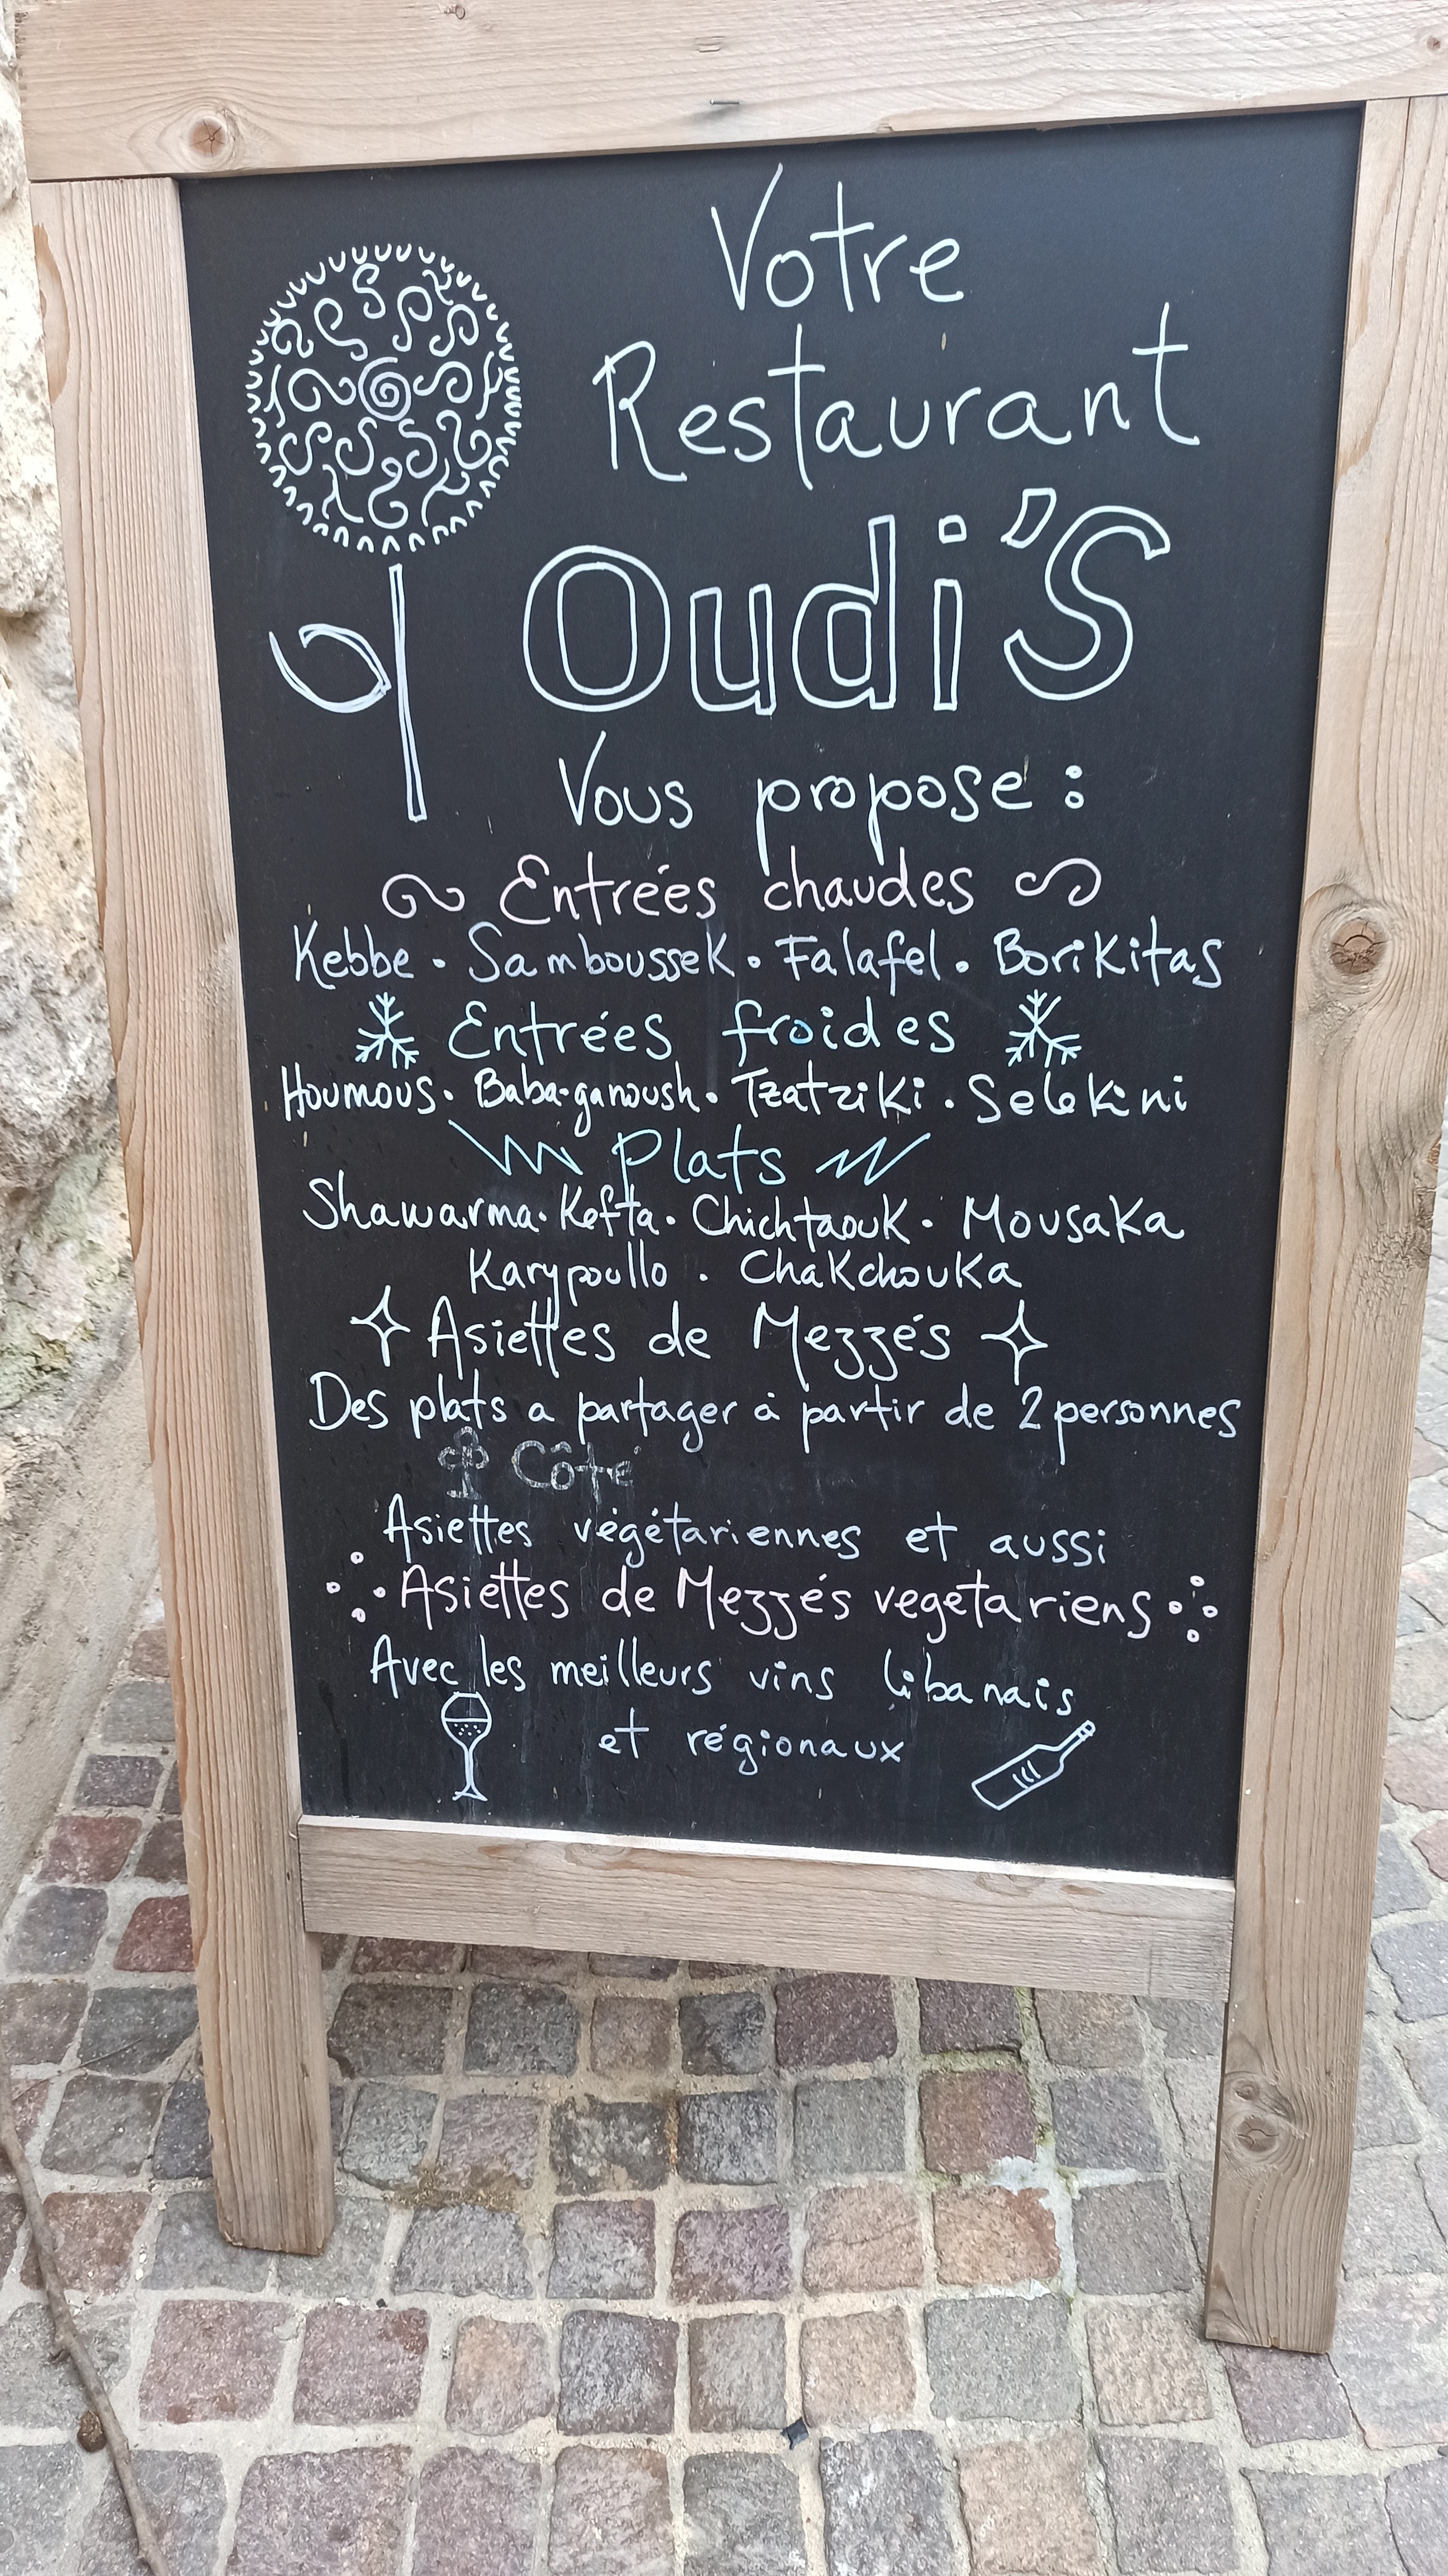 Votre
Restaurant
Oudi'S
Vous propose :
Entrées chaudes
Kebbe . Samboussek . Falafel . Borikitas
Entrées froides
Houmous . Baba-ganoush . Tzatziki . Selekini
Plats
Shawarma . Kefta . Chichtaouk . Mousaka
Karypoullo . Chakchouka
Asiettes de Mezzés
Des plats a partager à partir de 2 personnes
Côté
Asiettes végétariennes et aussi
Asiettes de Mezzés vegetariens
Avec les meilleurs vins libanais
et régionaux